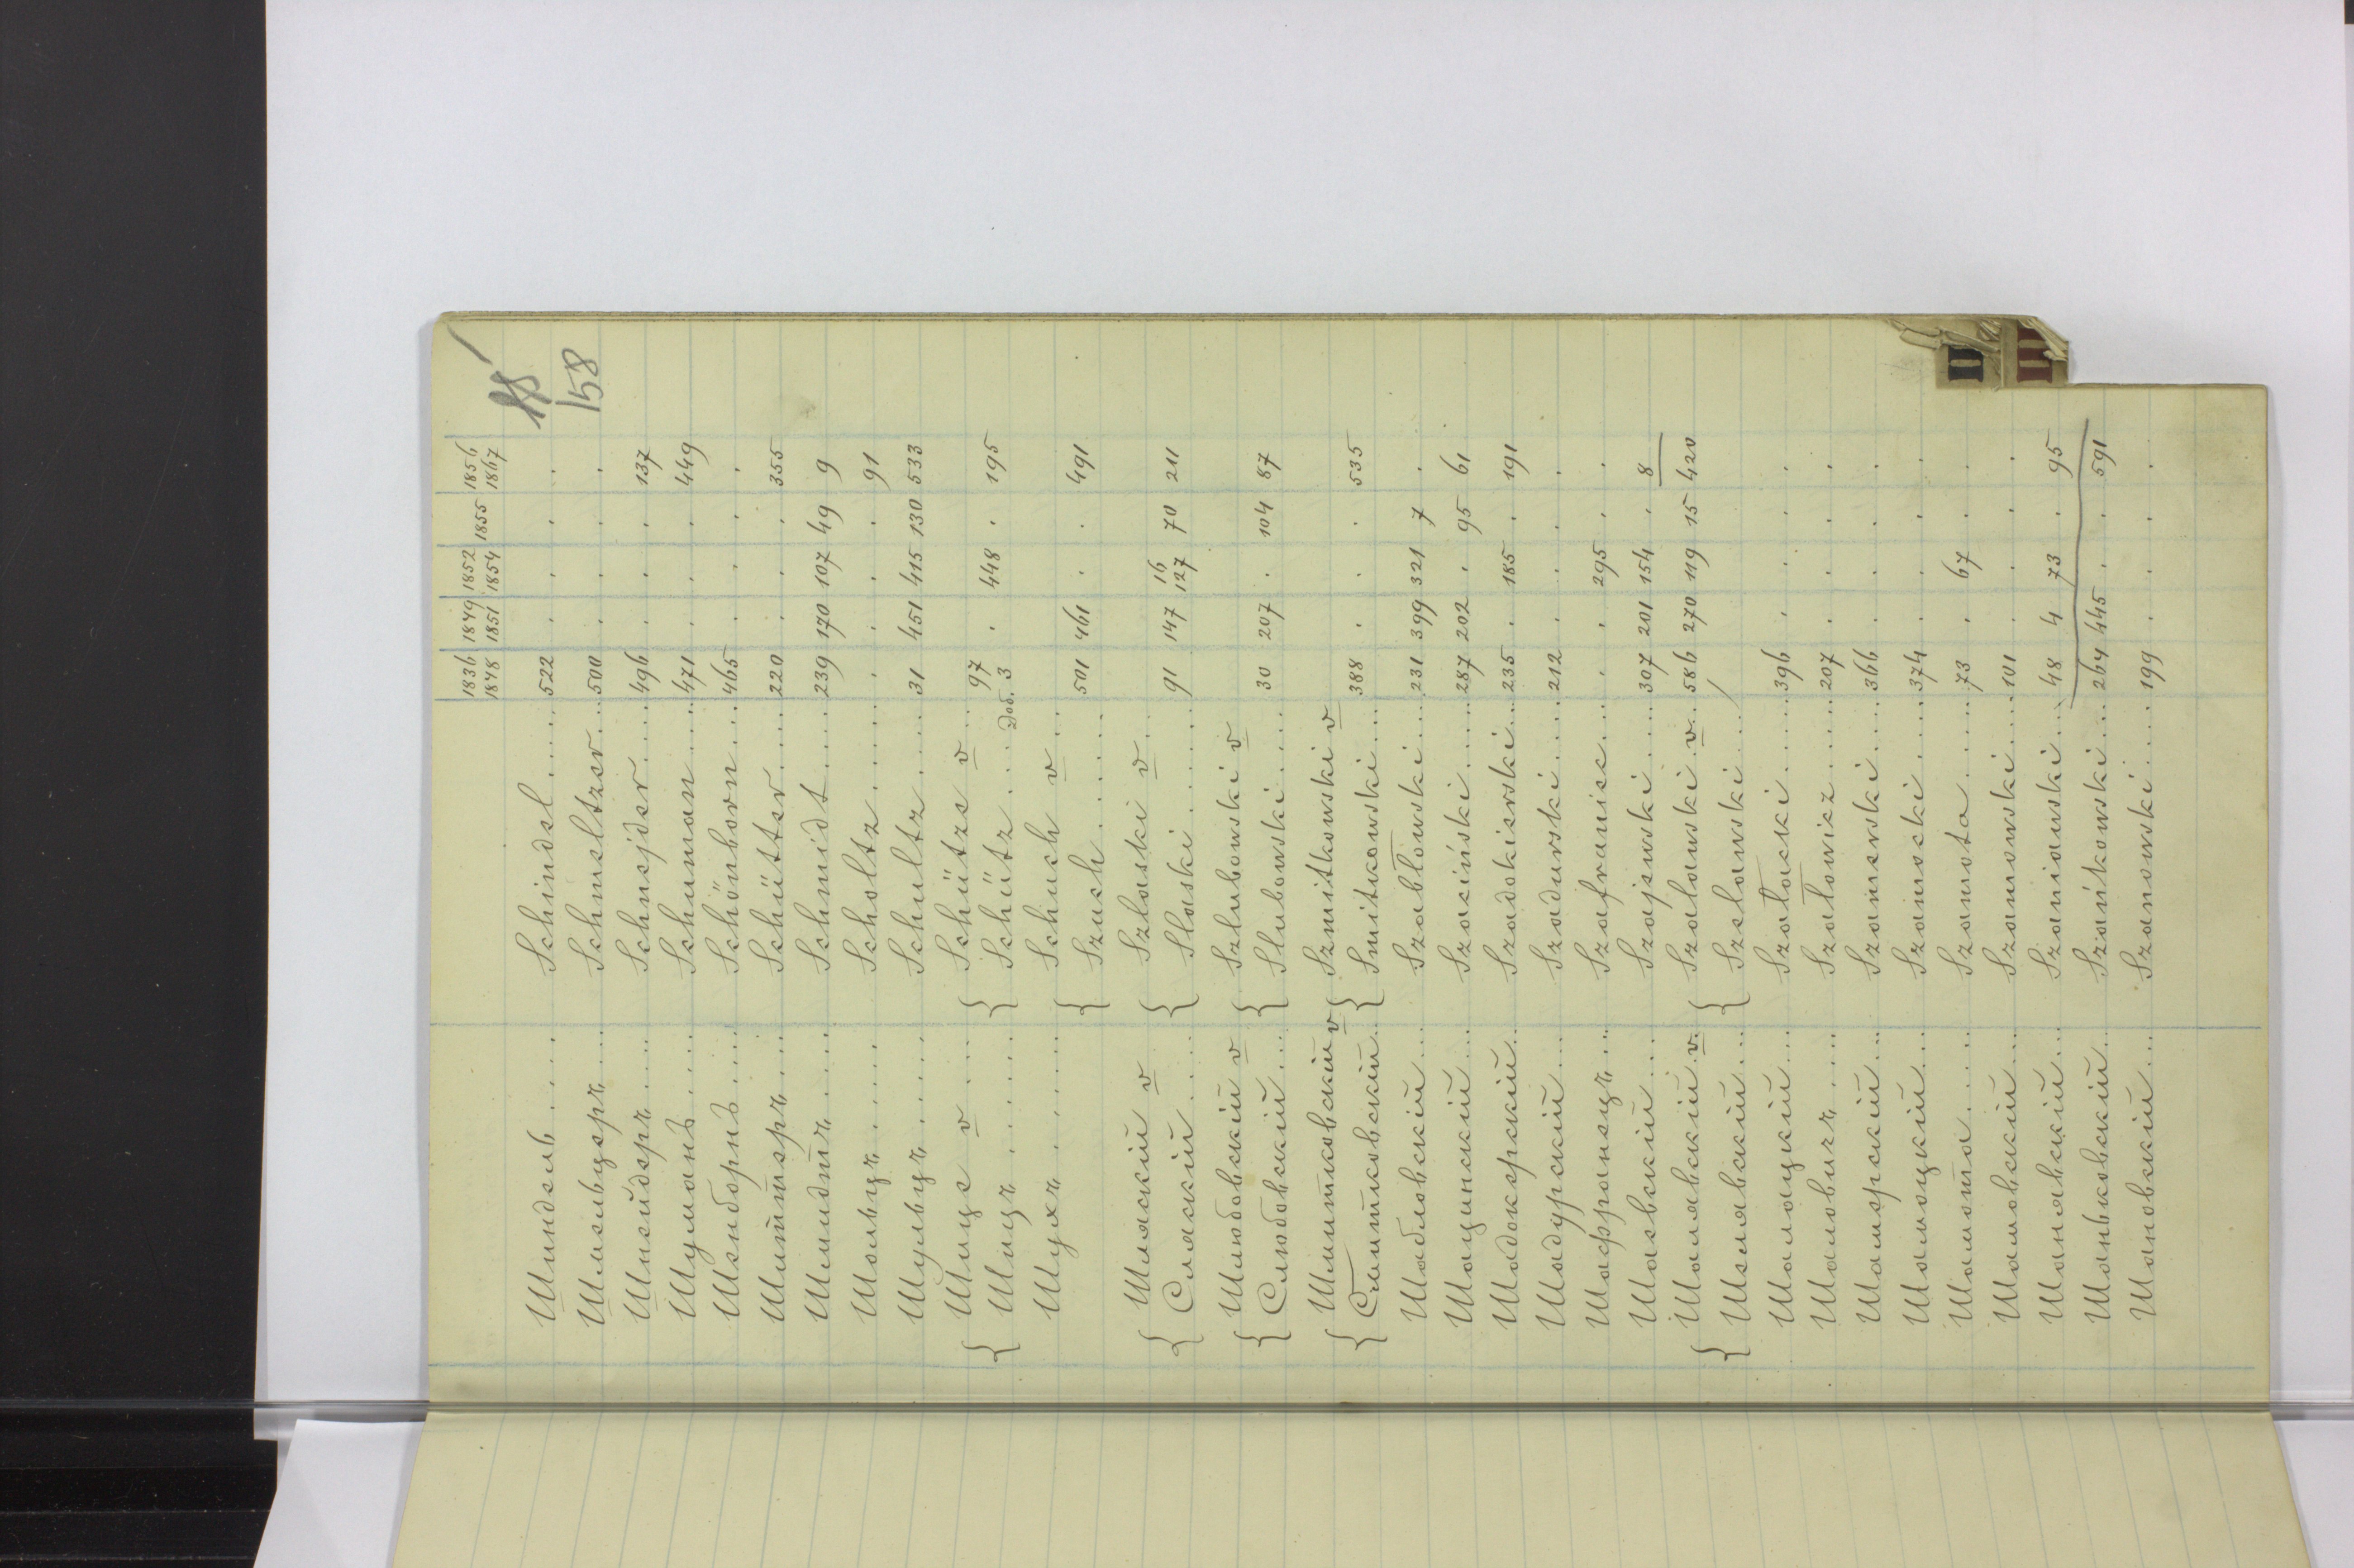 158
1836 1849 1852 1855 1856
1848 1851 1854 1867
Шиндель .... Schindel ..... 522 . . . .
Шмельцеръ .... Schmeltzer ... 500 . . . .
Шнейдеръ .... Schnejder .... 496 . . . 137
Шуманъ ..... Schumann .... 471 . . . 449
Шенборнъ .... Schönborn ... 465 . . . .
Шиттеръ .... Schütter ..... 220 . . . 355
Шмидтъ ..... Schmidt ..... 239 170 107 49 9
Шольцъ ..... Scholtz ..... . . . . 91
Шульцъ ..... Schultz ..... 31 451 415 130 533
{ Шице v .... { Schütze v ... 97
Шицъ ..... Schütz .... Доб. 3 . 448 . 195
Шухъ ..... { Schuch v ..
Szuch ..... 501 461 . . 491
{ Шляскій v { Szlaski v ...
Сляскій .... Slaski ..... 91 147 16 127 70 211
{ Шлюбовскій v { Szlubowski v
Слюбовскій ... Slubowski .... 30 207 . 104 87
{ Шмитковскій v { Szmitkowski v
Смитковскій .. Smitkowski ... 388 . . . 535
Шабловскій ... Szabłowski .... 231 399 321 7 .
Шацинскій ... Szaciński ..... 287 202 . 95 61
Шадокерскій .. Szadokierski ... 235 . 185 . 191
Шадурскій ... Szadurski .... 212 . . . .
Шаффранецъ ... Szafraniec ... . . 295 . .
Шаевскій .... Szajewski ..... 307 201 154 . 8
{ Шалавскій v. { Szalawski v. 586 270 119 15 420
Шелявскій ... Szelawski ... /
Шалацкій .... Szałacki ..... 396 . . . .
Шаловичъ .... Szałowicz .... 207 . . . .
Шамерскій ... Szamerski .... 366 . . . .
Шамоцкій ... Szamocki ..... 374 . . . .
Шамота ..... Szamota ..... 73 . 67 . .
Шамовскій ... Szamowski .... 101 . . . .
Шанявскій ... Szaniawski ... 48 4 73 . 95
Шаньковскій .. Szańkowski ... 264 445 . . 591
Шановскій ... Szanowski .... 199 . . . .